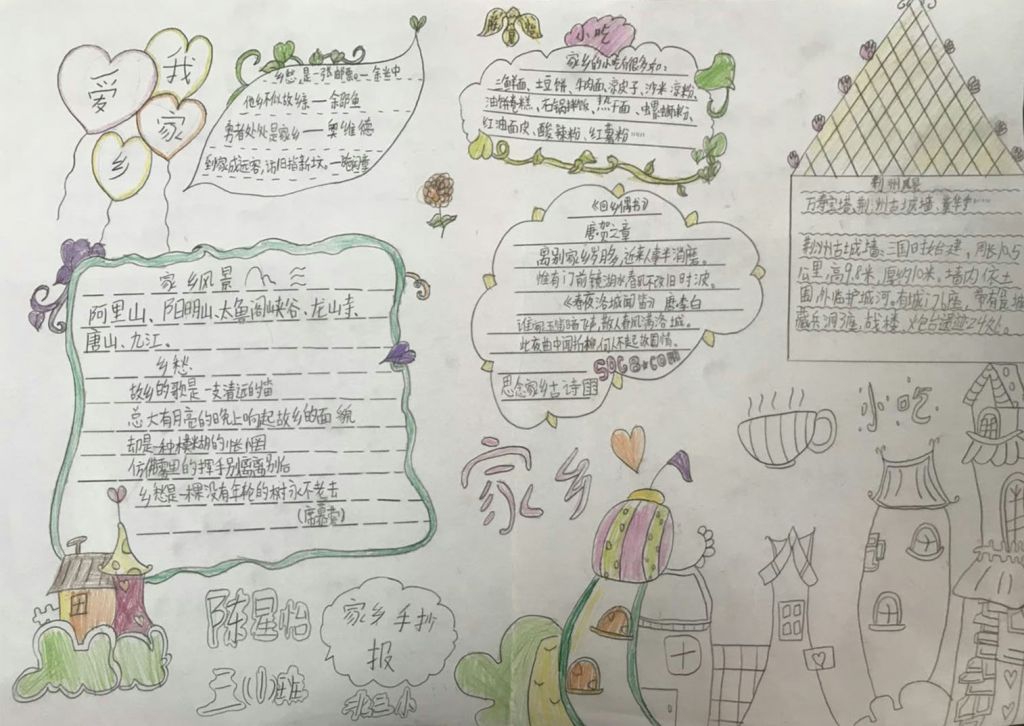 我爱家乡
乡愁,是一张邮票。—余光中
他乡不似故乡亲—余邵鱼
勇者处处是家乡—奥维德
到家成远客,访旧指新坟。
小吃
家乡的小吃有很多如:
三鲜面、土豆饼、牛肉面、凉皮子、沙米凉粉、
油饼卷糕、石锅拌饭、热干面、
红油面皮、酸辣粉、红薯粉……
荆州风景
万寿宝塔、荆州古城墙、章华寺……
荆州古城墙、三国时始建,周长10.5
公里,高9.8米,厚约10米。墙内依土
围,外临护城河。有城门座,带有瓮城
藏兵洞,战楼,炮台遗迹24处。
家乡风景
阿里山、阳明山、太鲁阁峡谷、龙山寺、
唐山、九江。
乡愁
故乡的歌是一支清远的笛
总大有月亮的晚上响起故乡的面貌
却是一种模糊的怅惘
仿佛雾里的挥手别离
乡愁是一棵没有年轮的树永不老去
(席慕蓉)
《回乡偶书》
唐贺之章
离别家乡岁月多,近来人事半消磨。
惟有门前镜湖水春风不改旧时波。
《春夜洛城闻笛》唐李白
谁家玉笛暗飞声,散入春风满洛城。
此夜曲中闻折柳,何人不起故园情。
思念家乡古诗
家乡
小吃
陈星怡
三(1)班
家乡手抄
报